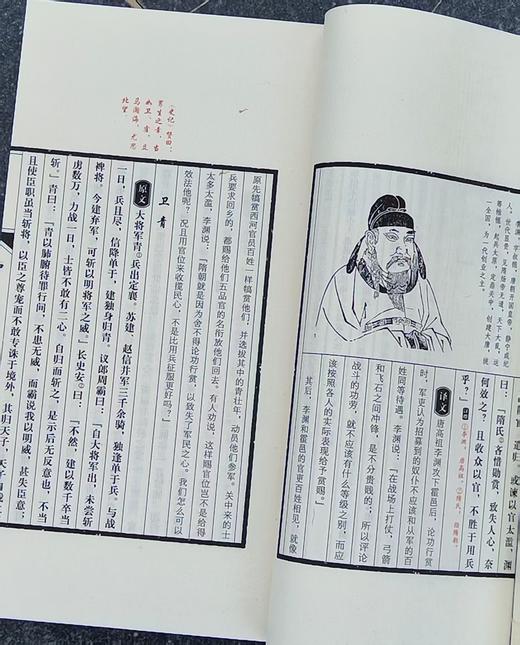 渊，字叔德，唐朝开国皇帝。静宁成纪
人。世代显贵，见隋炀帝无道，天下大乱，遂
起兵太原，定鼎关中，创建大唐，统
一全国，为一代创业之主。
道归，或谏以官太滥，渊
曰：「隋氏②吝惜勋赏，致失人心，奈
何效之？且收众以官，不胜于用兵
乎？」
①李渊：唐高祖。②隋氏：指隋朝。
译文 唐高祖李渊攻下霍邑后，论功行赏
时，军吏认为招募到的奴仆不应该和从军的百
姓同等待遇。李渊说：「在战场上打仗，弓箭
和飞石之间冲锋，是不分贵贱的；所以评论
战斗的功劳，就不应该有什么等级之别，而应
该按照各人的实际表现给予赏赐。」
其后，李渊和霍邑的官吏百姓相见，就像
原先犒赏西河官员百姓一样犒赏他们，并选拔其中的青壮年，动员他们参军。关中来的士
兵要求回乡的，都赐给他们五品官的名衔放他们回去。有人劝说，这样赐官位岂不是给得
太多太滥，李渊说：「隋朝就是因为舍不得论功行赏，以致失了军民之心。我们怎么可以
效法他呢？况且用官位来收揽民心，不是比用兵征服更好吗？」
卫青
原文 大将军青①兵出定襄。苏建、赵信并军三千余骑，独逢单于兵。与战
一日，兵且尽，信降单于，建独身归青。议郎周霸曰：「自大将军出，未尝斩
裨将，今建弃军，可斩以明将军之威。」长史安②曰：「不然，建以数千卒当
虏数万，力战一日，士皆不敢有二心。自归而斩之，是示后无反意也，不当
斩。」青曰：「青以肺腑待罪行间，不患无威，而霸说我以明威，甚失臣意；
且使臣职虽当斩将，以臣之尊宠而不敢专诛于境外，其归天子，天子